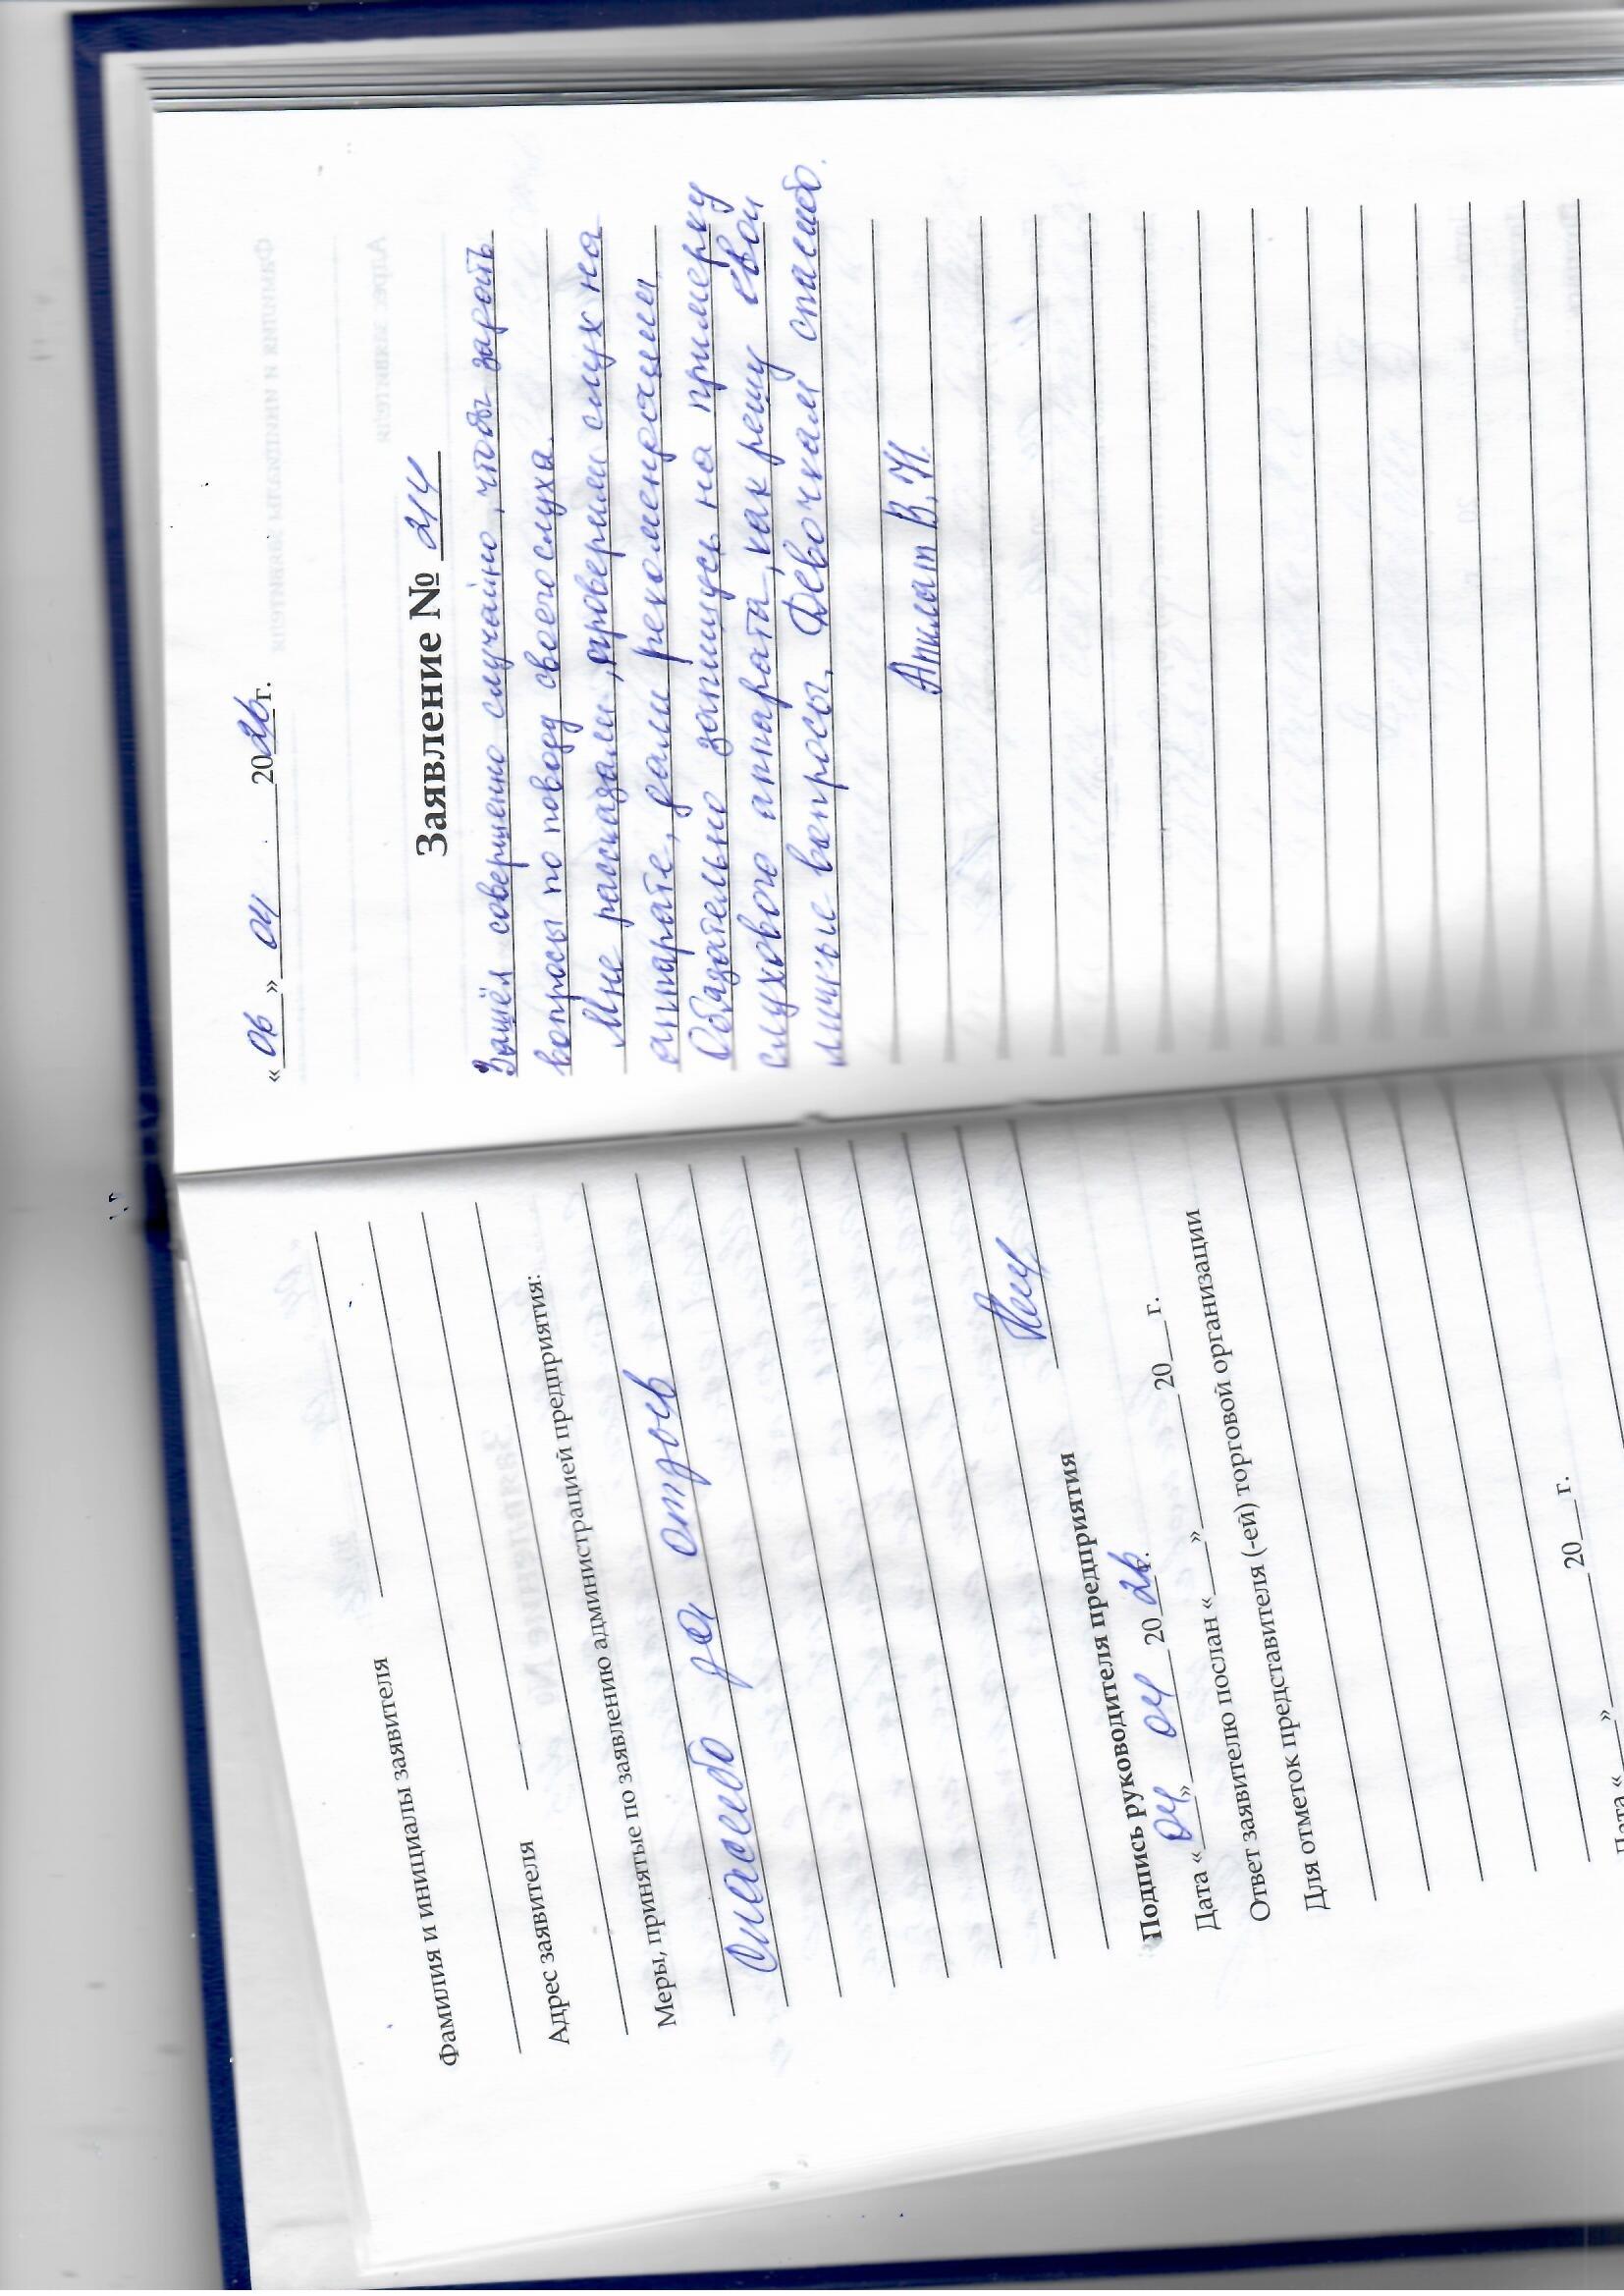 Фамилия и инициалы заявителя
Адрес заявителя
Меры, принятые по заявлению администрацией предприятия:
Спасибо за отзыв
Подпись руководителя предприятия
Дата «04» 04 2026 г.
Ответ заявителю послан «___»________20__г.
Для отметок представителя (-ей) торговой организации
Дата «___»________20__г.
«06» 04 2026г.
Заявление № 214
Зашёл совершенно случайно, чтобы задать
вопросы по поводу своего слуха.
Мне рассказали, проверили слух на
аппарате, дали рекомендации.
Обязательно запишусь на примерку
слухового аппарата, как решу свои
личные вопросы. Девочкам спасибо.
В.Н.